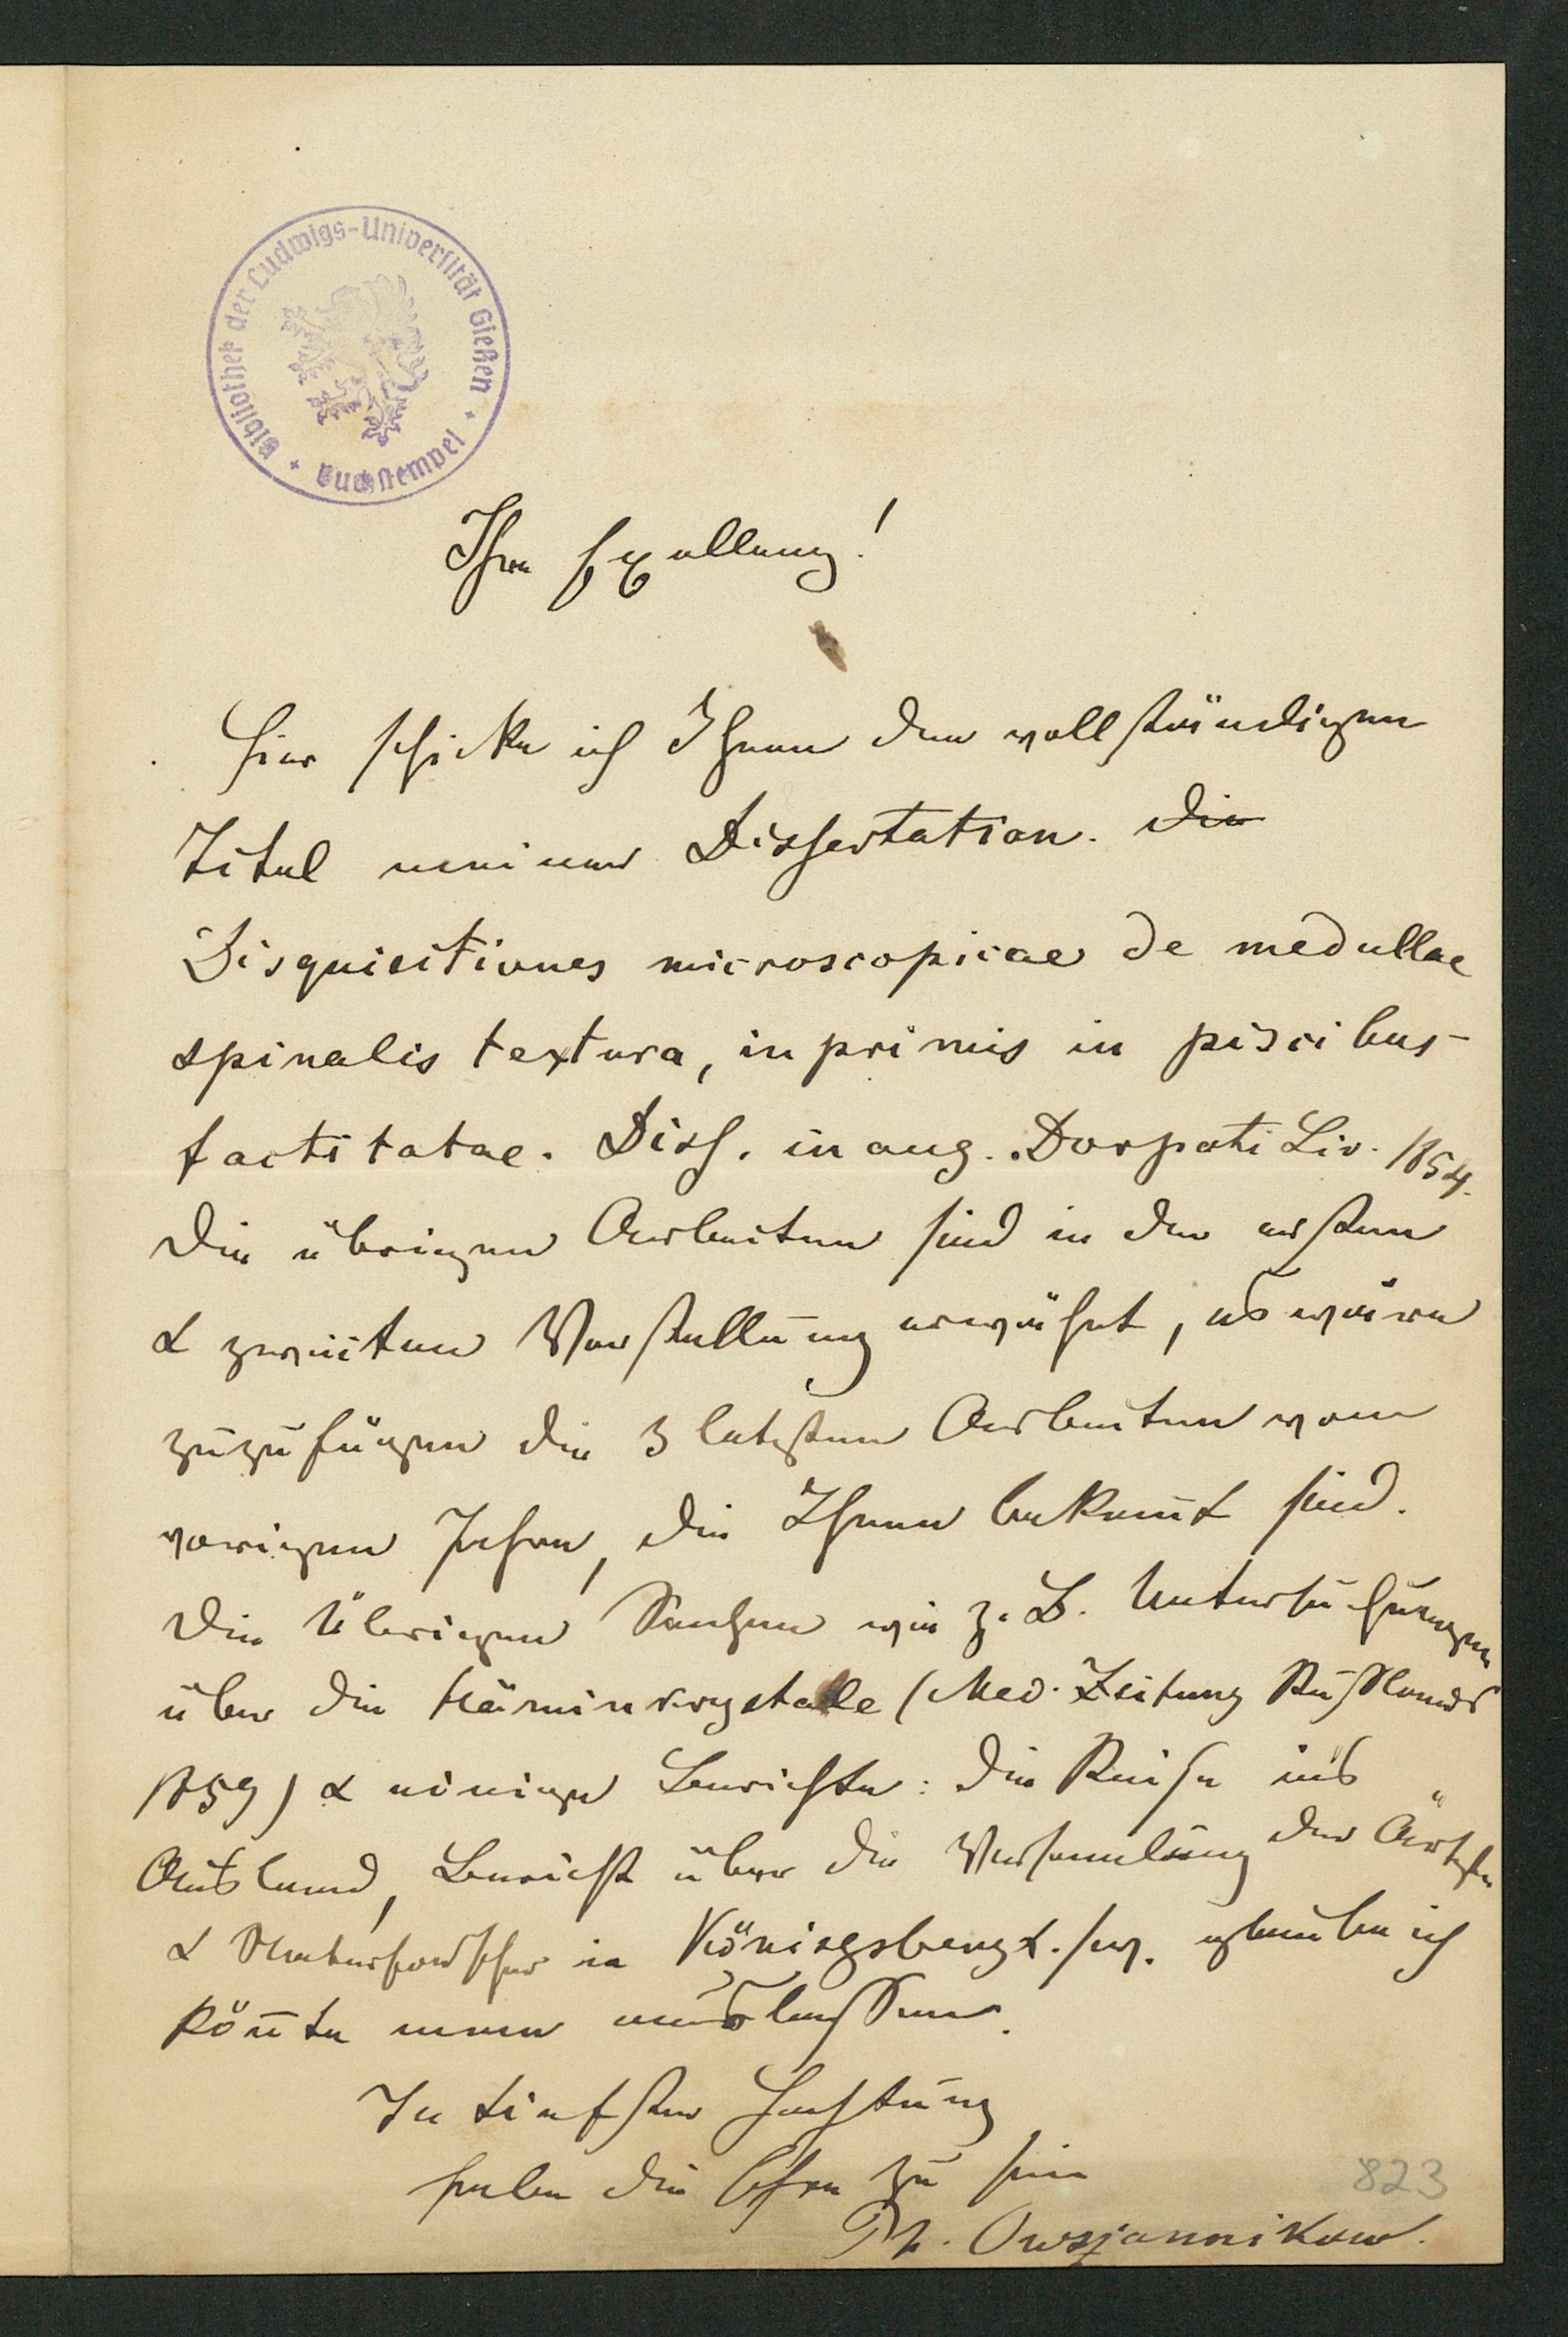 Bibliothek der Ludwigs-Universität Gießen
+ Buchstempel +
Ihre Exzellenz!
Hier schicke ich Ihnen den vollständigen
Titel meiner Dissertation. Die
Disquisitiones microscopicae de medullae
spinalis textura, inprimis in piscibus
factitatae. Diss. inaug. Dorpati Liv. 1854.
Die übrigen Arbeiten sind in der ersten
& zweiten Vorstellung erwähnt, es wären
zuzufügen die 3 letzten Arbeiten vom
vorigen Jahre, die Ihnen bekannt sind.
Die Übrigen Sachen wie z. B. Untersuchungen
über die Häminkrystalle (Med. Zeitung Russlands
1859) & einige Berichte: die Reise ins
Ausland, Bericht über die Versamlung der Ärtzte
& Naturforscher in Königsberg &. sw. glaube ich
könnte man auslassen.
In tiefster Hochachtung
habe die Ehre zu sein
Ph. Owsjannikow.
823